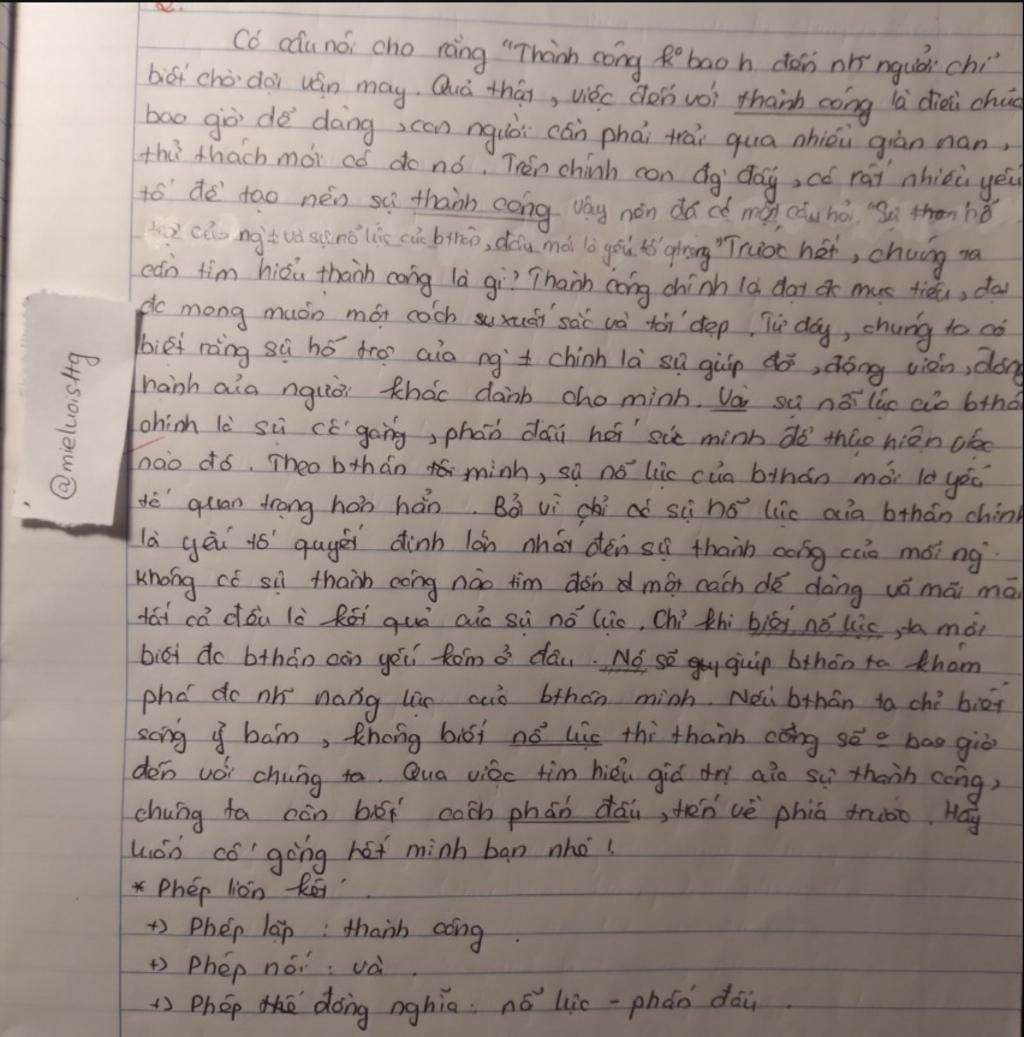 2.
Có câu nói cho rằng "Thành công ko bao h đến nh~ người chỉ
biết chờ đợi vận may. Quả thật, việc đến với thành công là điều chưa
bao giờ dễ dàng, con người cần phải trải qua nhiều gian nan,
thử thách mới có đc nó. Trên chính con đg đấy, có rất nhiều yếu
tố để tạo nên sự thành công vậy nên đã có một câu hỏi. "Sự hỗ
trợ của ng' ≠ và sự nỗ lực của bthân, đâu mới là yếu tố qtrọng" Trước hết, chúng ta
cần tìm hiểu thành công là gì? Thành công chính là đạt đc mục tiêu, đạt
đc mong muốn một cách xuất sắc và tốt đẹp. Từ đây, chúng ta có
biết rằng sự hỗ trợ của ng' ≠ chính là sự giúp đỡ, động viên, đồng
hành của người khác dành cho mình. Và sự nỗ lực của bthân
chính là sự cố gắng, phấn đấu hết sức mình để thực hiện việc
nào đó. Theo bthân mình, sự nỗ lực của bthân mới là yếu
tố quan trọng hơn hẳn. Bởi vì chỉ có sự nỗ lực của bthân chính
là yếu tố quyết định lớn nhất đến sự thành công của mỗi ng'.
Không có sự thành công nào tìm đến một cách dễ dàng và mãi mãi
tất cả đều là kết quả của sự nỗ lực. Chỉ khi biết nỗ lực, ta mới
biết đc bthân còn yếu kém ở đâu. Nó sẽ giúp bthân ta khám
phá đc nh~ năng lực của bthân mình. Nếu bthân ta chỉ biết
sống ỷ bám, không biết nỗ lực thì thành công sẽ o bao giờ
đến với chúng ta. Qua việc tìm hiểu giá trị của sự thành công,
chúng ta cần biết cách phấn đấu, tiến về phía trước. Hãy
luôn cố gắng hết mình bạn nhé!
* Phép liên kết
+) Phép lặp: thành công.
+) Phép nối: và.
+) Phép thế đồng nghĩa: nỗ lực - phấn đấu.
@mieluoisttg